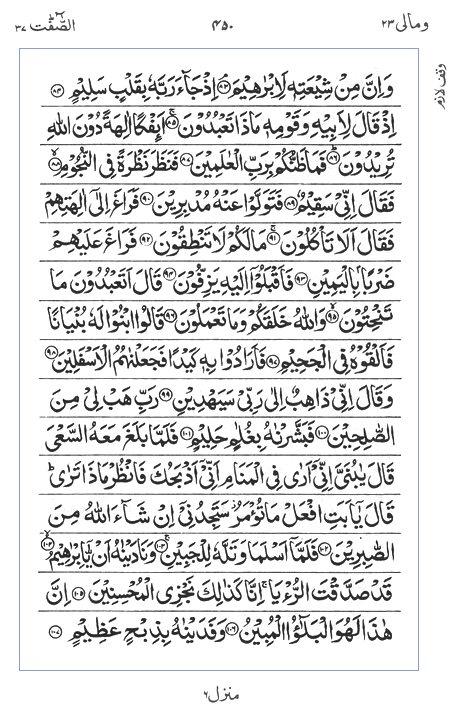 ومالی ۲۳ ۴۵۰ الصّٰٓفّٰت ۳۷
وقف لازم
وَاِنَّ مِنْ شِيْعَتِهٖ لَاِبْرٰهِيْمَ ۘ‏﴿۸۳﴾ اِذْ جَآءَ رَبَّهٗ بِقَلْبٍ سَلِيْمٍ ﴿۸۴﴾
اِذْ قَالَ لِاَبِيْهِ وَقَوْمِهٖ مَاذَا تَعْبُدُوْنَ ۚ‏﴿۸۵﴾ اَئِفْكًا اٰلِهَةً دُوْنَ اللّٰهِ
تُرِيْدُوْنَ ؕ‏﴿۸۶﴾ فَمَا ظَنُّكُمْ بِرَبِّ الْعٰلَمِيْنَ ﴿۸۷﴾ فَنَظَرَ نَظْرَةً فِى النُّجُوْمِ ۙ‏﴿۸۸﴾
فَقَالَ اِنِّىْ سَقِيْمٌ ﴿۸۹﴾ فَتَوَلَّوْا عَنْهُ مُدْبِرِيْنَ ﴿۹۰﴾ فَرَاغَ اِلٰٓى اٰلِهَتِهِمْ
فَقَالَ اَلَا تَاْكُلُوْنَ ۚ‏﴿۹۱﴾ مَا لَكُمْ لَا تَنْطِقُوْنَ ﴿۹۲﴾ فَرَاغَ عَلَيْهِمْ
ضَرْبًۢا بِالْيَمِيْنِ ﴿۹۳﴾ فَاَقْبَلُوْۤا اِلَيْهِ يَزِفُّوْنَ ﴿۹۴﴾ قَالَ اَتَعْبُدُوْنَ مَا
تَنْحِتُوْنَ ۙ‏﴿۹۵﴾ وَاللّٰهُ خَلَقَكُمْ وَمَا تَعْمَلُوْنَ ﴿۹۶﴾ قَالُوا ابْنُوْا لَهٗ بُنْيَانًا
فَاَلْقُوْهُ فِى الْجَحِيْمِ ﴿۹۷﴾ فَاَرَادُوْا بِهٖ كَيْدًا فَجَعَلْنٰهُمُ الْاَسْفَلِيْنَ ﴿۹۸﴾
وَقَالَ اِنِّىْ ذَاهِبٌ اِلٰى رَبِّىْ سَيَهْدِيْنِ ﴿۹۹﴾ رَبِّ هَبْ لِىْ مِنَ
الصّٰلِحِيْنَ ﴿۱۰۰﴾ فَبَشَّرْنٰهُ بِغُلٰمٍ حَلِيْمٍ ﴿۱۰۱﴾ فَلَمَّا بَلَغَ مَعَهُ السَّعْىَ
قَالَ يٰبُنَىَّ اِنِّىْۤ اَرٰى فِى الْمَنَامِ اَنِّىْۤ اَذْبَحُكَ فَانْظُرْ مَاذَا تَرٰى ؕ
قَالَ يٰۤاَبَتِ افْعَلْ مَا تُؤْمَرُ سَتَجِدُنِىْۤ اِنْ شَآءَ اللّٰهُ مِنَ
الصّٰبِرِيْنَ ﴿۱۰۲﴾ فَلَمَّاۤ اَسْلَمَا وَتَلَّهٗ لِلْجَبِيْنِ ۚ‏﴿۱۰۳﴾ وَنَادَيْنٰهُ اَنْ يّٰۤاِبْرٰهِيْمُ ۙ‏﴿۱۰۴﴾
قَدْ صَدَّقْتَ الرُّءْيَا ۚ اِنَّا كَذٰلِكَ نَجْزِى الْمُحْسِنِيْنَ ﴿۱۰۵﴾ اِنَّ
هٰذَا لَهُوَ الْبَلٰٓؤُا الْمُبِيْنُ ﴿۱۰۶﴾ وَفَدَيْنٰهُ بِذِبْحٍ عَظِيْمٍ ﴿۱۰۷﴾
منزل ۶